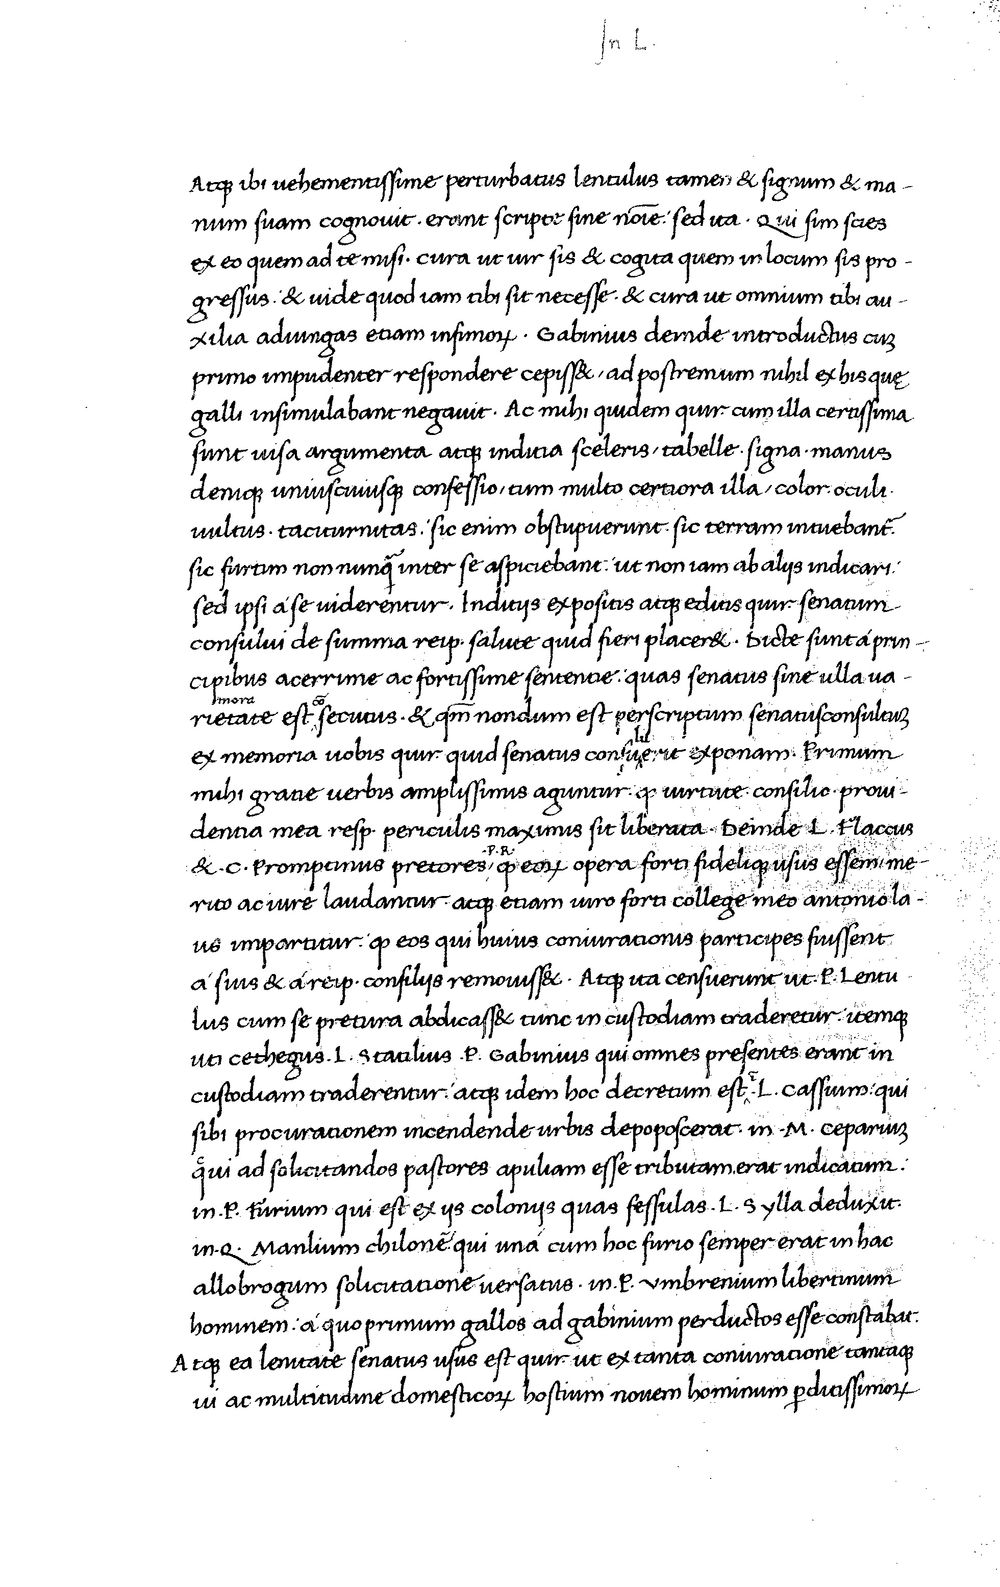 In L.
Atq; ibi uehementissime perturbatus lentulus tamen & signum & ma-
num suam cognouit · erant scripte sine noīe: sed ita · Qui sim scies
ex eo quem ad te misi · cura ut uir sis & cogita quem in locum sis pro-
gressus: & uide quod iam tibi sit necesse · & cura ut omnium tibi au-
xilia adiungas etiam infimoꝝ · Gabinius deinde introductus cuꝫ
primo impudenter respondere cepiss& / ad postremum nihil ex his quę
galli insimulabant negauit · Ac mihi quidem quir· cum illa certissima
sunt uisa argumenta atq; inditia sceleris / tabelle · signa · manus
deniq; uniuscuiusq; confessio / tum multo certiora illa / color· oculi·
uultus · taciturnitas: sic enim obstupuerunt· sic terram intuebant̄:
sic furtim non nunq̄ inter se aspiciebant: ut non iam ab aliis indicari:
sed ipsi á se uiderentur · Inditiis expositis atq; editis quir· senatum
consului de summa reip· salute quid fieri placer& · Dicte sunt á prin-
cipibus acerrime ac fortissime sententie: quas senatus sine ulla ua-
mora co
rietate est secutus · & qm̄ nondum est perscriptum senatusconsultuꝫ
lu
ex memoria uobis quir· quid senatus consuerit exponam · Primum
mihi gratie uerbis amplissimis aguntur· ꝙ uirtute· consilio· proui-
dentia mea resp· periculis maximis sit liberata · Deinde L · Flaccus
·P·R·
& · C · Promptinus pretores / ꝙ eoꝝ opera forti fideliq; usus essem: me-
rito ac iure laudantur· atq; etiam uiro forti college meo antonio la-
us impartitur: ꝙ eos qui huius coniurationis participes fuissent
á suis & á reip· consiliis remouiss& · Atq; ita censuerunt ut· P· Lentu
lus cum se pretura abdicass& tunc in custodiam traderetur: itemq;
uti cethegus · L · Statilius · P · Gabinius qui omnes presentes erant in
custodiam traderentur: atq; idem hoc decretum est · L · Cassium: qui
sibi procurationem incendende urbis depoposcerat· in · M · Cepariuꝫ
qui ad solicitandos pastores apuliam esse tributam erat indicatum:
in · P · Furium qui est ex iis coloniis quas fessulas · L · Sylla deduxit·
in · Q · Manlium chilonē qui uná cum hoc furio semper erat in hac
allobrogum solicitatione uersatus · in · P · Vmbrenium libertinum
hominem: á quo primum gallos ad gabinium perductos esse constabat:
Atq; ea lenitate senatus usus est quir· ut ex tanta coniuratione tantaq;
ui ac multitudine domesticoꝝ hostium nouem hominum ꝑditissimoꝝ